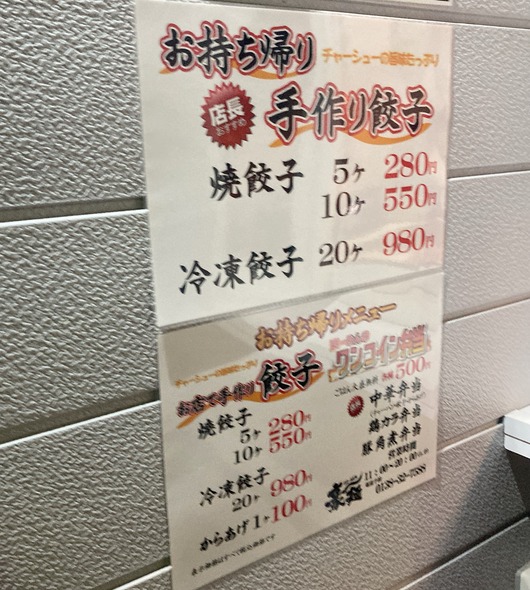 お持ち帰り
チャーシューの旨味たっぷり
店長
おすすめ
手作り餃子
焼餃子 5ヶ 280円
10ヶ 550円
冷凍餃子 20ヶ 980円
お持ち帰りメニュー
チャーシューの旨味たっぷり
お店で手作り餃子
焼餃子
5ヶ 280円
10ヶ 550円
冷凍餃子
20ヶ 980円
からあげ 1ヶ 100円
表示価格はすべて税込価格です
ワンコイン弁当
ごはん大盛無料 各種500円
中華弁当
鶏カラ弁当
豚角煮弁当
営業時間
11:00~20:00
0138-32-7588